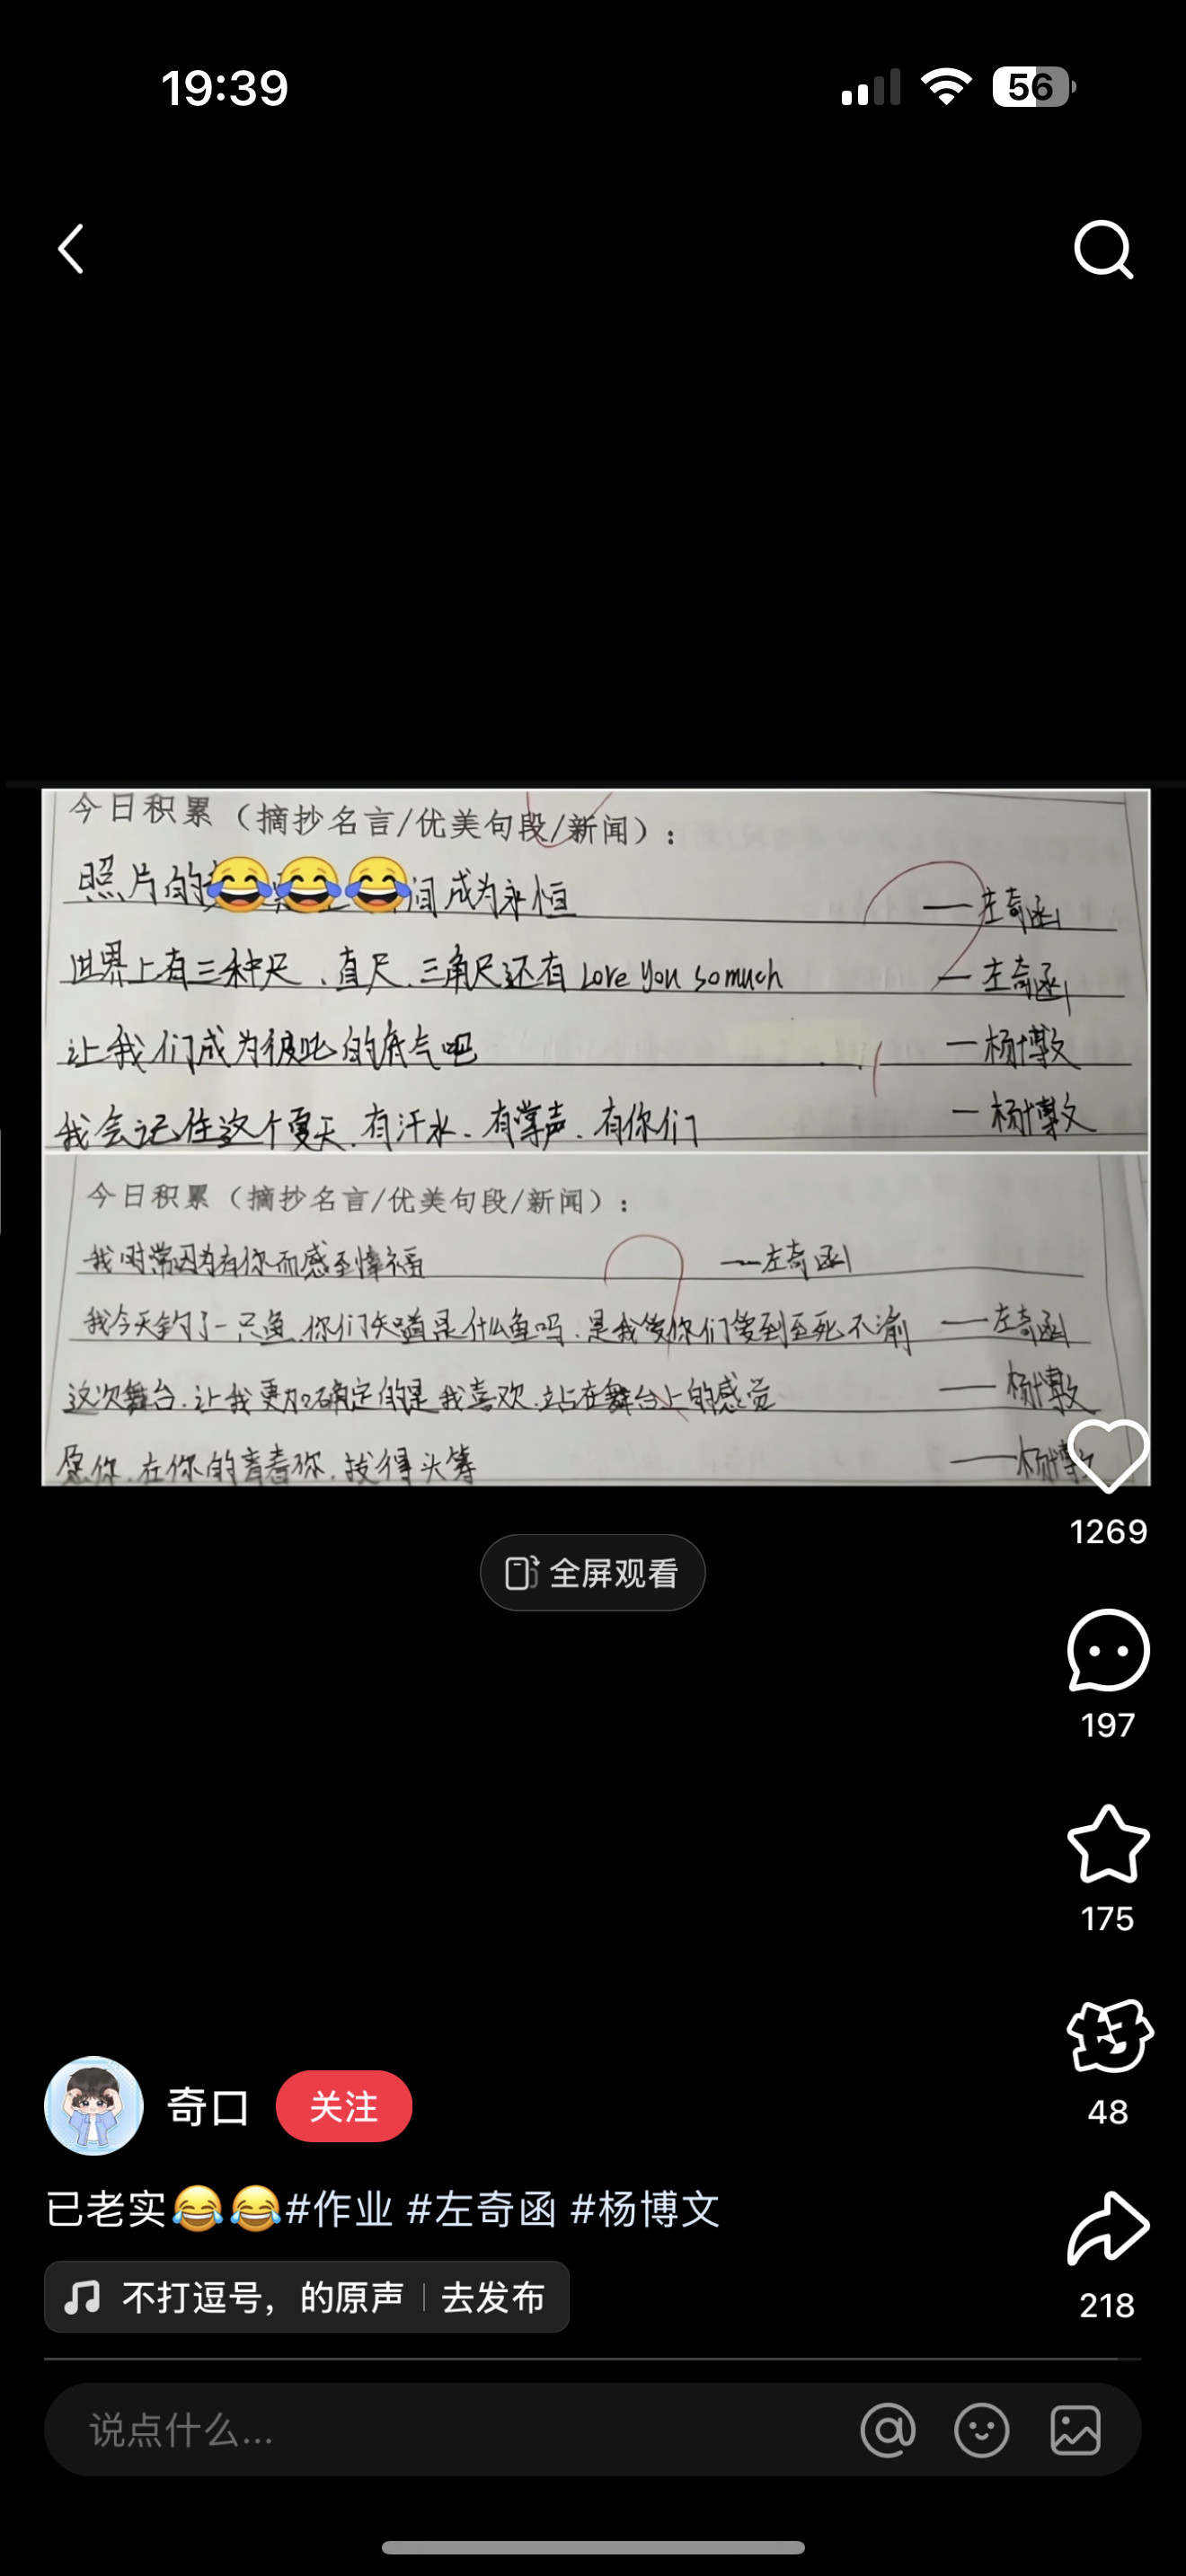 19:39
56
今日积累（摘抄名言/优美句段/新闻）：
照片的 间成为永恒 ——左奇函
世界上有三种尺、直尺、三角尺还有Love you so much —左奇函
让我们成为彼此的底气吧 —杨博文
我会记住这个夏天、有汗水、有掌声、有你们 —杨博文
今日积累（摘抄名言/优美句段/新闻）：
我时常因为有你而感到幸福 —左奇函
我今天钓了一只鱼、你们知道是什么鱼吗、是我爱你们爱到至死不渝 ——左奇函
这次舞台、让我更加确定的是我喜欢、站在舞台上的感觉 ——杨博文
愿你、在你的青春你、拔得头筹 ——杨博文
1269
全屏观看
197
175
48
奇口 关注
已老实😂😂#作业 #左奇函 #杨博文
不打逗号，的原声 | 去发布
218
说点什么...